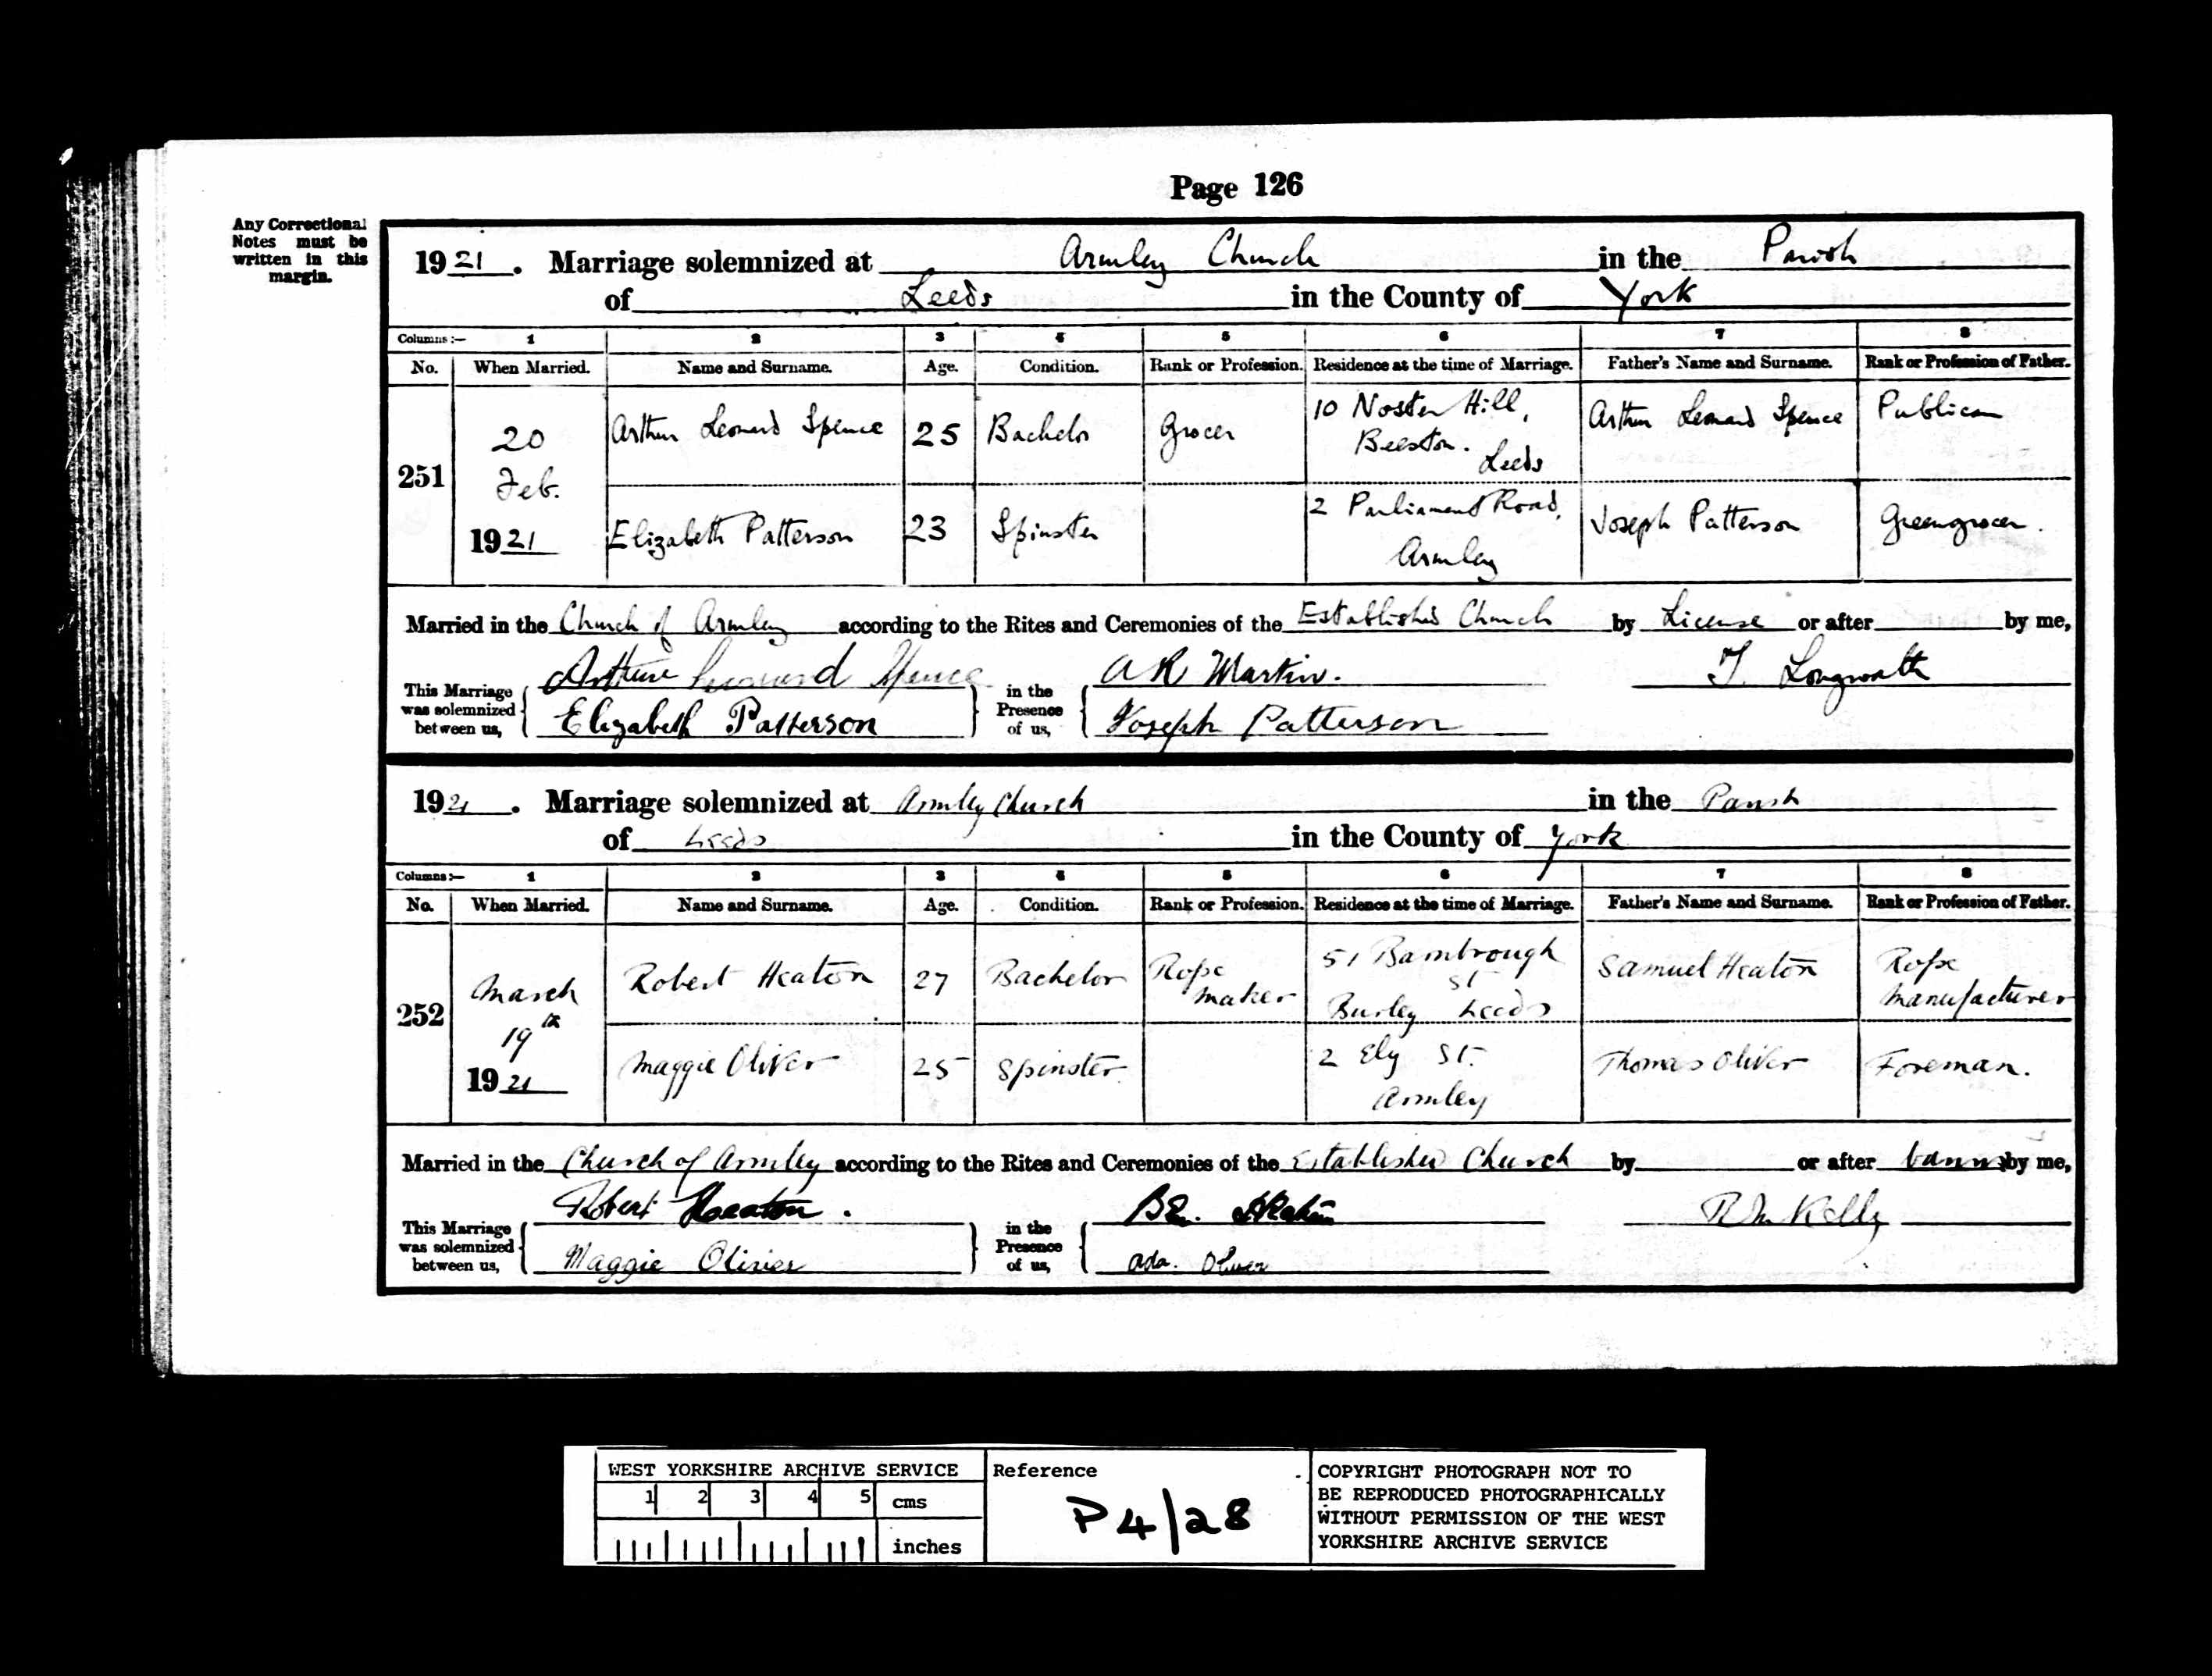 Page 126
Any Correctional
Notes must be
written in this
margin.
1921. Marriage solemnized at Armley Church in the Parish
of Leeds in the County of York
Columns:— 1 2 3 4 5 6 7 8
No. When Married. Name and Surname. Age. Condition. Rank or Profession. Residence at the time of Marriage. Father's Name and Surname. Rank or Profession of Father.
251 20 Feb. 1921 Arthur Leonard Spence 25 Bachelor Grocer 10 Noster Hill, Beeston. Leeds Arthur Leonard Spence Publican
Elizabeth Patterson 23 Spinster 2 Parliament Road, Armley Joseph Patterson Greengrocer.
Married in the Church of Armley according to the Rites and Ceremonies of the Established Church by License or after by me,
This Marriage was solemnized between us, Arthur Leonard Spence in the Presence of us, A R Martin. T. Longworth
Elizabeth Patterson Joseph Patterson
1921. Marriage solemnized at Armley Church in the Parish
of Leeds in the County of York
Columns:— 1 2 3 4 5 6 7 8
No. When Married. Name and Surname. Age. Condition. Rank or Profession. Residence at the time of Marriage. Father's Name and Surname. Rank or Profession of Father.
252 March 19th 1921 Robert Heaton 27 Bachelor Rope maker 51 Bambrough St Burley Leeds Samuel Heaton Rope Manufacturer
Maggie Oliver 25 Spinster 2 Ely St. Armley Thomas Oliver Foreman.
Married in the Church of Armley according to the Rites and Ceremonies of the Established Church by or after banns by me,
This Marriage was solemnized between us, Robert Heaton. in the Presence of us, Heaton Kelly
Maggie Oliver Ada. Oliver
WEST YORKSHIRE ARCHIVE SERVICE
1 2 3 4 5 cms
inches
Reference
P4/28
COPYRIGHT PHOTOGRAPH NOT TO
BE REPRODUCED PHOTOGRAPHICALLY
WITHOUT PERMISSION OF THE WEST
YORKSHIRE ARCHIVE SERVICE